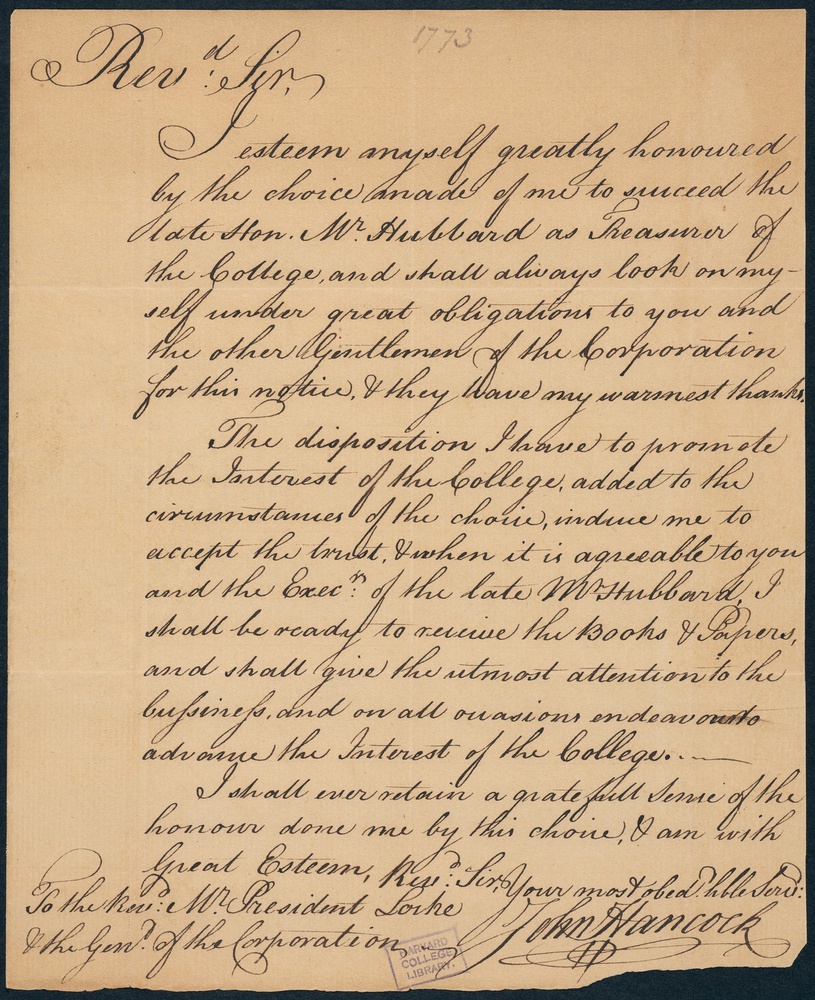 1773
Revd: Sir,
I esteem myself greatly honoured
by the choice made of me to succeed the
late Hon. Mr. Hubbard as Treasurer of
the College, and shall always look on my-
self under great obligations to you and
the other Gentlemen of the Corporation
for this notice, & they have my warmest thanks.
The disposition I have to promote
the Interest of the College, added to the
circumstances of the choice, induce me to
accept the trust, & when it is agreeable to you
and the Execrs: of the late Mr Hubbard, I
shall be ready to receive the Books & Papers,
and shall give the utmost attention to the
bussiness, and on all occasions endeavour to
advance the Interest of the College.
I shall ever retain a gratefull sense of the
honour done me by this choice, & am with
Great Esteem, Revd: Sir, Your most obedt. hble Servt:
To the Revd: Mr. President Locke
John Hancock
& the Gent. of the Corporation
HARVARD
COLLEGE
LIBRARY.